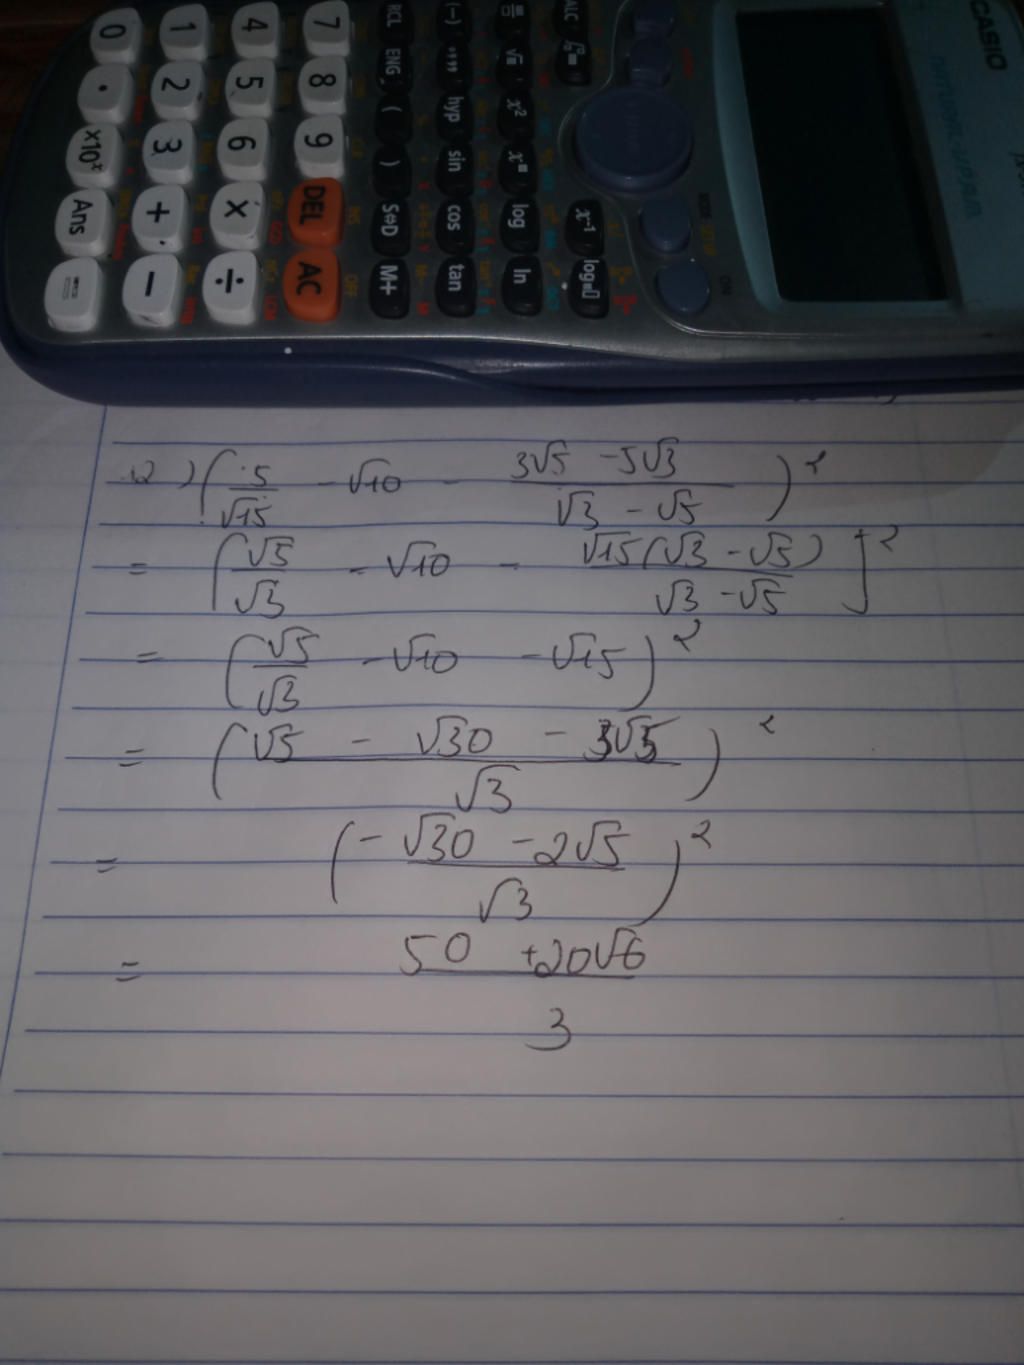 CASIO
0 1 4 7 RCL (−) ALC
. 2 5 8 ENG °''' √
×10ˣ 3 6 9 ( hyp x²
Ans + × DEL ) sin
= − ÷ AC S⇔D cos log x⁻¹
M+ tan ln log
MODE SETUP ON
12) (5/√15 - √10 - (3√5 - 5√3)/(√3 - √5))²
= (√5/√3 - √10 - √15(√3 - √5)/(√3 - √5)]²
= (√5/√3 - √10 - √15)²
= ((√5 - √30 - 3√5)/√3)²
= ((-√30 - 2√5)/√3)²
= (50 + 20√6)/3